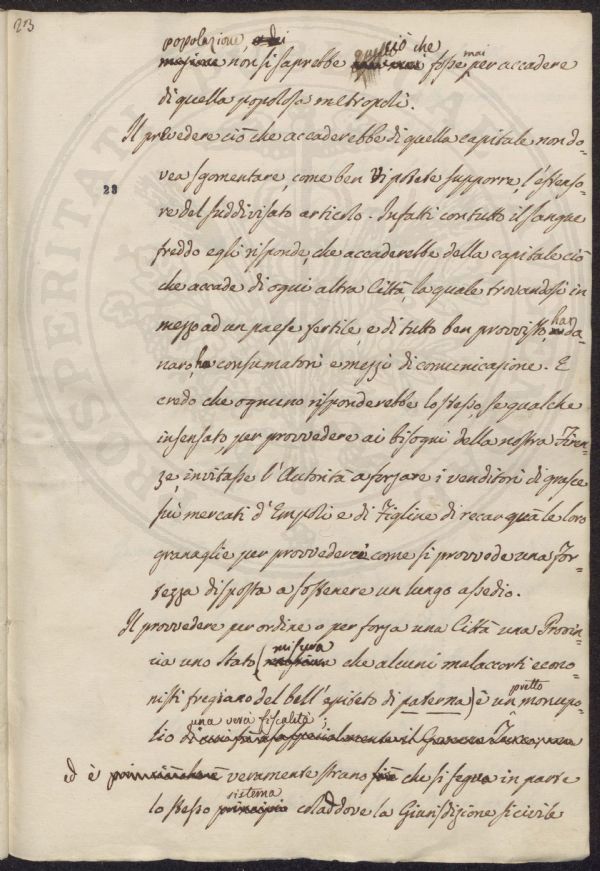 213
popolazione, ciò che
non si saprebbe fosse mai per accadere
di quella popolosa metropoli.
Il prevedere ciò che accaderebbe di quella capitale non do-
vea sgomentare, come ben Vi potete supporre, l'estenso-
23
re del suddivisato articolo. Infatti con tutto il sangue
freddo egli risponde, che accaderebbe della capitale ciò
che accade di ogni altra Città, la quale trovandosi in
mezzo ad un paese fertile, e di tutto ben provvisto, han da-
naro, consumatori e mezzi di comunicazione. E
credo che ognuno risponderebbe lo stesso, se qualche
insensato, per provvedere ai bisogni della nostra Firen-
ze, invitasse l'Autorità a forzare i venditori di grasce
sui mercati d'Empoli e di Figline di recar quà le loro
granaglie per provvederci come si provvede una For-
tezza disposta a sostenere un lungo assedio.
Il provvedere per ordine o per forza una Città una Provin-
cia uno Stato (misura che alcuni malaccorti econo-
misti fregiano del bell'epiteto di paterna) è un pretto monopo-
lio una vera fiscalità;
ed è veramente strano che si segua in parte
lo stesso sistema coladdove la Giurisdizione si civile
PROSPERITATI